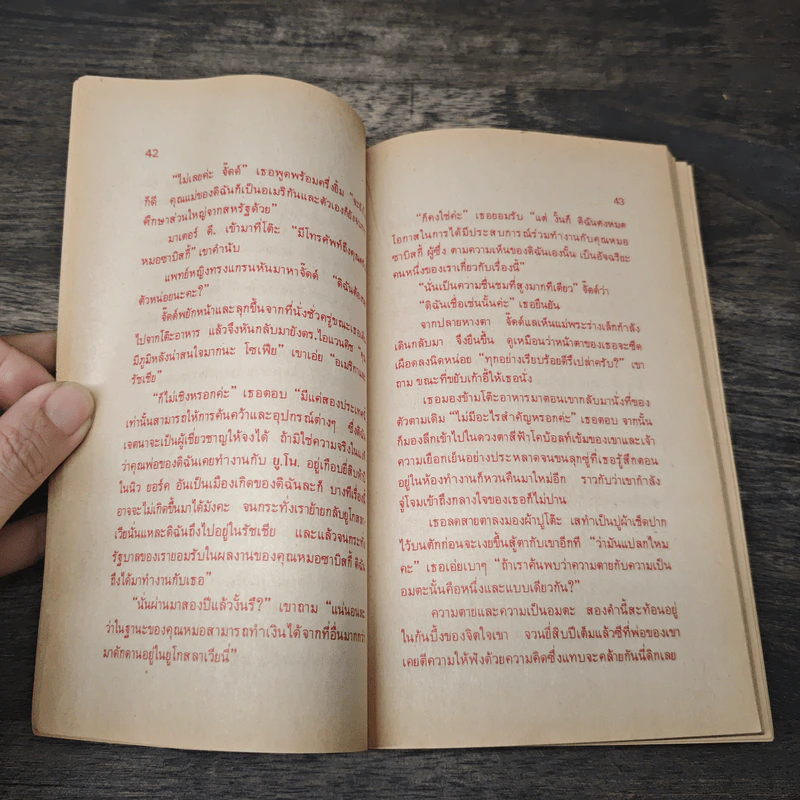 42
"ไม่เลยค่ะ จั๊ดด์" เธอพูดพร้อมครึ่งยิ้ม
ก็ดี คุณแม่ของดิฉันก็เป็นอเมริกันและตัวเองก็ยัง
ศึกษาส่วนใหญ่จากสหรัฐด้วย"
มาเตอร์ ดี. เข้ามาที่โต๊ะ "มีโทรศัพท์ถึงคุณ
หมอซาบิสกี้" เขาคำนับ
แพทย์หญิงทรงแกรนหันมาหาจั๊ดด์ "ดิฉัน
ตัวหน่อยนะคะ?"
จั๊ดด์พยักหน้าและลุกขึ้นจากที่นั่งชั่วครู่ขณะเธอ
ไปจากโต๊ะอาหาร แล้วจึงหันกลับมายังดร.ไอแวนคิช
มีภูมิหลังน่าสนใจมากนะ โซเฟีย" เขาเอ่ย "อเมริกา
รัชเชีย"
"ก็ไม่เชิงหรอกค่ะ" เธอตอบ "มีแค่สองประเทศ
เท่านั้นสามารถให้การค้นคว้าและอุปกรณ์ต่างๆ ซึ่งดิฉัน
เจตนาจะเป็นผู้เชี่ยวชาญให้จงได้ ถ้ามิใช่ความจริงใน
ว่าคุณพ่อของดิฉันเคยทำงานกับ ยู.โน. อยู่เกือบยี่สิบ
ในนิว ยอร์ค อันเป็นเมืองเกิดของดิฉันละก็ บางทีเรื่องนี้
อาจจะไม่เกิดขึ้นมาได้มังคะ จนกระทั่งเราย้ายกลับยูโกสลา
เวียนั่นแหละดิฉันถึงไปอยู่ในรัชเชีย และแล้วจนกระทั่ง
รัฐบาลของเรายอมรับในผลงานของคุณหมอซาบิสกี้ ดิฉัน
ถึงได้มาทำงานกับเธอ"
"นั่นผ่านมาสองปีแล้วงั้นรึ?" เขาถาม "แน่นอนละ
ว่าในฐานะของคุณหมอสามารถทำเงินได้จากที่อื่นมากกว่า
มาดักดานอยู่ในยูโกสลาเวียนี่"
43
"ก็คงใช่ค่ะ" เธอยอมรับ "แต่ งั้นก็ ดิฉันคงหมด
โอกาสในการได้มีประสบการณ์ร่วมทำงานกับคุณหมอ
ซาบิสกี้ ผู้ซึ่ง ตามความเห็นของดิฉันเองนั้น เป็นอัจฉริยะ
คนหนึ่งของเราเกี่ยวกับเรื่องนี้"
"นั่นเป็นความชื่นชมที่สูงมากทีเดียว" จั๊ดด์ว่า
"ดิฉันเชื่อเช่นนั้นค่ะ" เธอยืนยัน
จากปลายหางตา จั๊ดด์แลเห็นแม่พระร่างเล็กกำลัง
เดินกลับมา จึงยืนขึ้น ดูเหมือนว่าหน้าตาของเธอจะซีด
เผือดลงนิดหน่อย "ทุกอย่างเรียบร้อยดีรึเปล่าครับ?" เขา
ถาม ขณะที่ขยับเก้าอี้ให้เธอนั่ง
เธอมองข้ามโต๊ะอาหารมาตอนเขากลับมานั่งที่ของ
ตัวตามเดิม "ไม่มีอะไรสำคัญหรอกค่ะ" เธอตอบ จากนั้น
ก็มองลึกเข้าไปในดวงตาสีฟ้าโคบ้อลท์เข้มของเขาและเจ้า
ความเยือกเย็นอย่างประหลาดจนขนลุกซู่ที่เธอรู้สึกตอน
อยู่ในห้องทำงานก็หวนคืนมาใหม่อีก ราวกับว่าเขากำลัง
จู่โจมเข้าถึงกลางใจของเธอก็ไม่ปาน
เธอลดสายตาลงมองผ้าปูโต๊ะ เสทำเป็นปูผ้าเช็ดปาก
ไว้บนตักก่อนจะเงยขึ้นสู้ตากับเขาอีกที "ว่ามันแปลกไหม
คะ" เธอเอ่ยเบาๆ "ถ้าเราค้นพบว่าความตายกับความเป็น
อมตะนั้นคือหนึ่งและแบบเดียวกัน?"
ความตายและความเป็นอมตะ สองคำนี้สะท้อนอยู่
ในก้นบึ้งของจิตใจเขา จวนยี่สิบปีเต็มแล้วซีที่พ่อของเขา
เคยตีความให้ฟังด้วยความคิดซึ่งแทบจะคล้ายกันนี่ดิกเลย